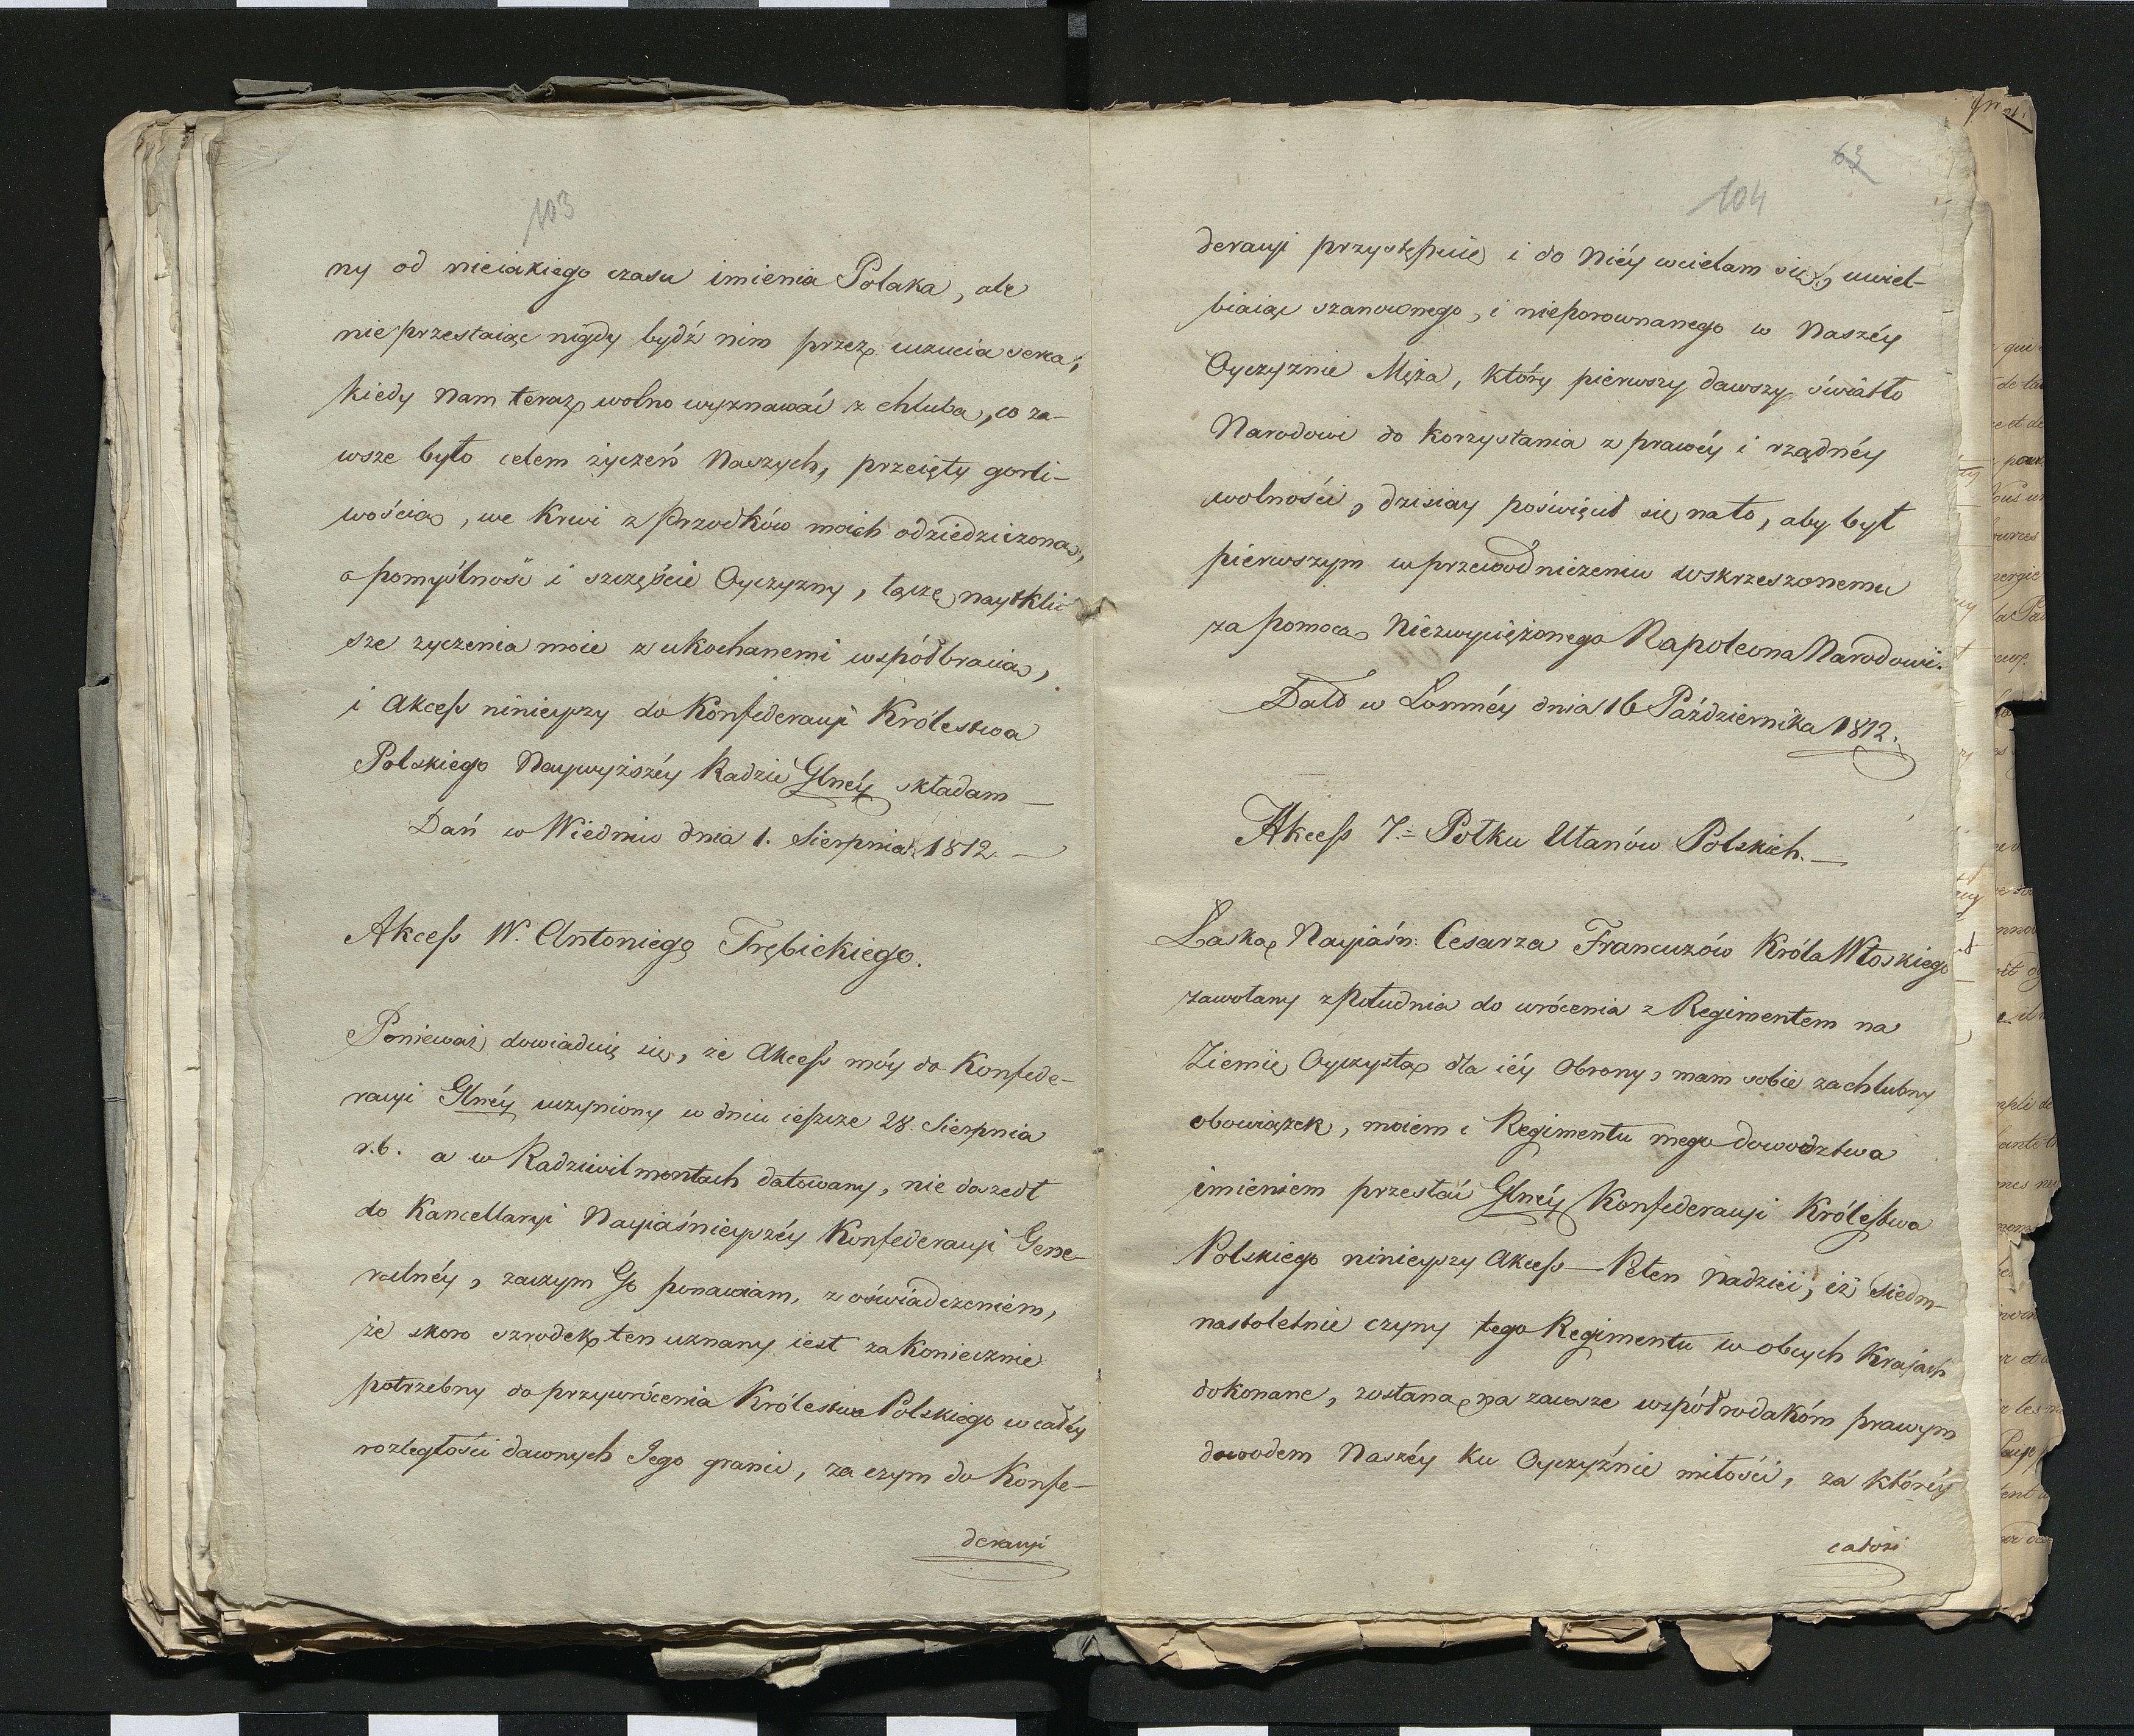 103
ny od nieiakiego czasu imienia Polaka, ale
nieprzestaiąc nigdy bydź nim przez uczucia serca;
kiedy Nam teraz wolno wyznawać z chlubą, co za-
wsze było celem życzeń Naszych, przeięty gorli-
wością, we krwi z Przodków moich odziedziczoną,
o pomyślność i szczęście Oyczyzny, łączę nay
sze zyczenia moie z ukochanemi współbracią,
i Akcess ninieyszy do Konfederacyi Królestwa
Polskiego Naywyższéy Radzie Glnéy składam —
Dań w Wiedniu dnia 1. Sierpnia 1812. —
Akcess W. Antoniego Trębickiego.
Ponieważ dowiaduię się, że Akcess móy do Konfede-
racyi Glnéy uczyniony w dniu ieszcze 28. Sierpnia
r.b. a w Radziwilmontach datowany, nie doszedł
do Kancellaryi Nayiaśnieyszéy Konfederacyi Gene-
ralnéy, zaczym Go ponawiam, z oświadczeniem,
że skoro szrodek ten uznany iest za koniecznie
potrzebny do przywrócenia Królestwa Polskiego w całéy
rozległości dawnych Jego granic, za czym do Konfe-
deracyi
63
104
deracyi przystępuię i do Niéy wcielam się, uwiel-
biaiąc szanownego, i nieporownanego w Naszéy
Oyczyznie Męża, który pierwszy dawszy światło
Narodowi do korzystania z prawéy i rządnéy
wolności, dzisiay poświęcił się na to, aby był
pierwszym w przewodniczeniu wskrzeszonemu
za pomocą Niezwyciężonego Napoleona Narodowi.
Datt w Łomnéy dnia 16 Października 1812.
Akcess 7.= Połku Ułanów Polskich. —
Łaską Nayiaśn: Cesarza Francuzów Króla Włoskiego
zawołany z Południa do wrócenia z Regimentem na
Ziemię Oyczystą dla iéy Obrony, mam sobie za chlubny
obowiązek, moiem i Regimentu mego dowodztwa
imieniem przesłać Glnéy Konfederacyi Królestwa
Polskiego ninieyszy Akcess — Pełen Nadziei, iż Siedm-
nastoletnie czyny tego Regimentu w obcych Krajach
dokonane, zostaną na zawsze współrodakóm prawym
dowodem Naszéy ku Oyczyźnie miłości, za któréy
całośi